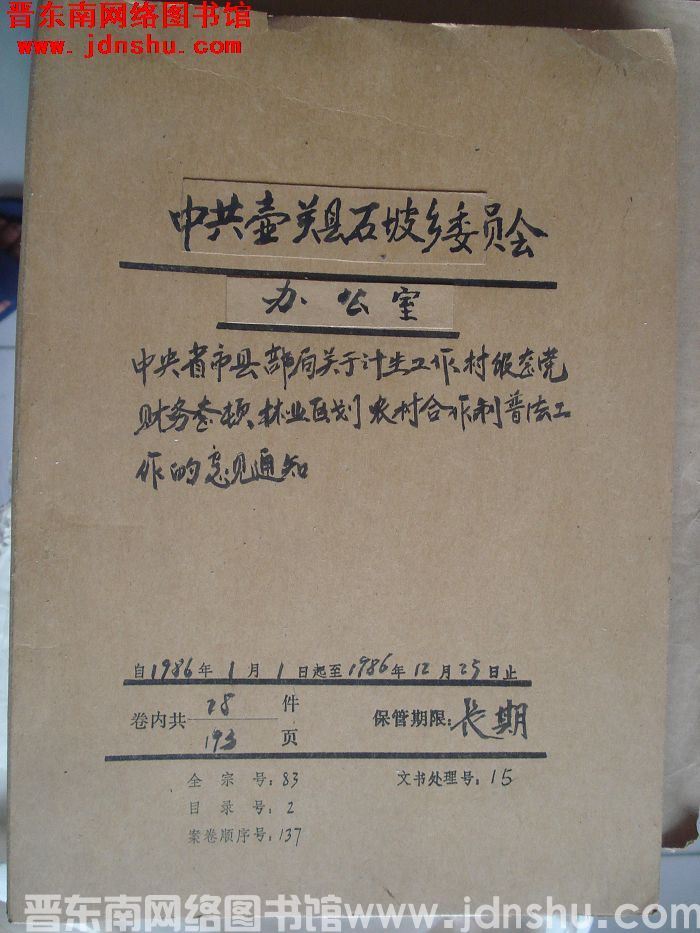 晋东南网络图书馆
www.jdnshu.com
中共壶关县石坡乡委员会
办公室
中央省市县部局关于计生工作村级整党
财务整顿林业区划农村合作制普法工
作的意见通知
自1986年1月1日起至1986年12月25日止
卷内共 28 件
193 页
保管期限:长期
全宗号:83
文书处理号:15
目录号:2
案卷顺序号:137
晋东南网络图书馆www.jdnshu.com